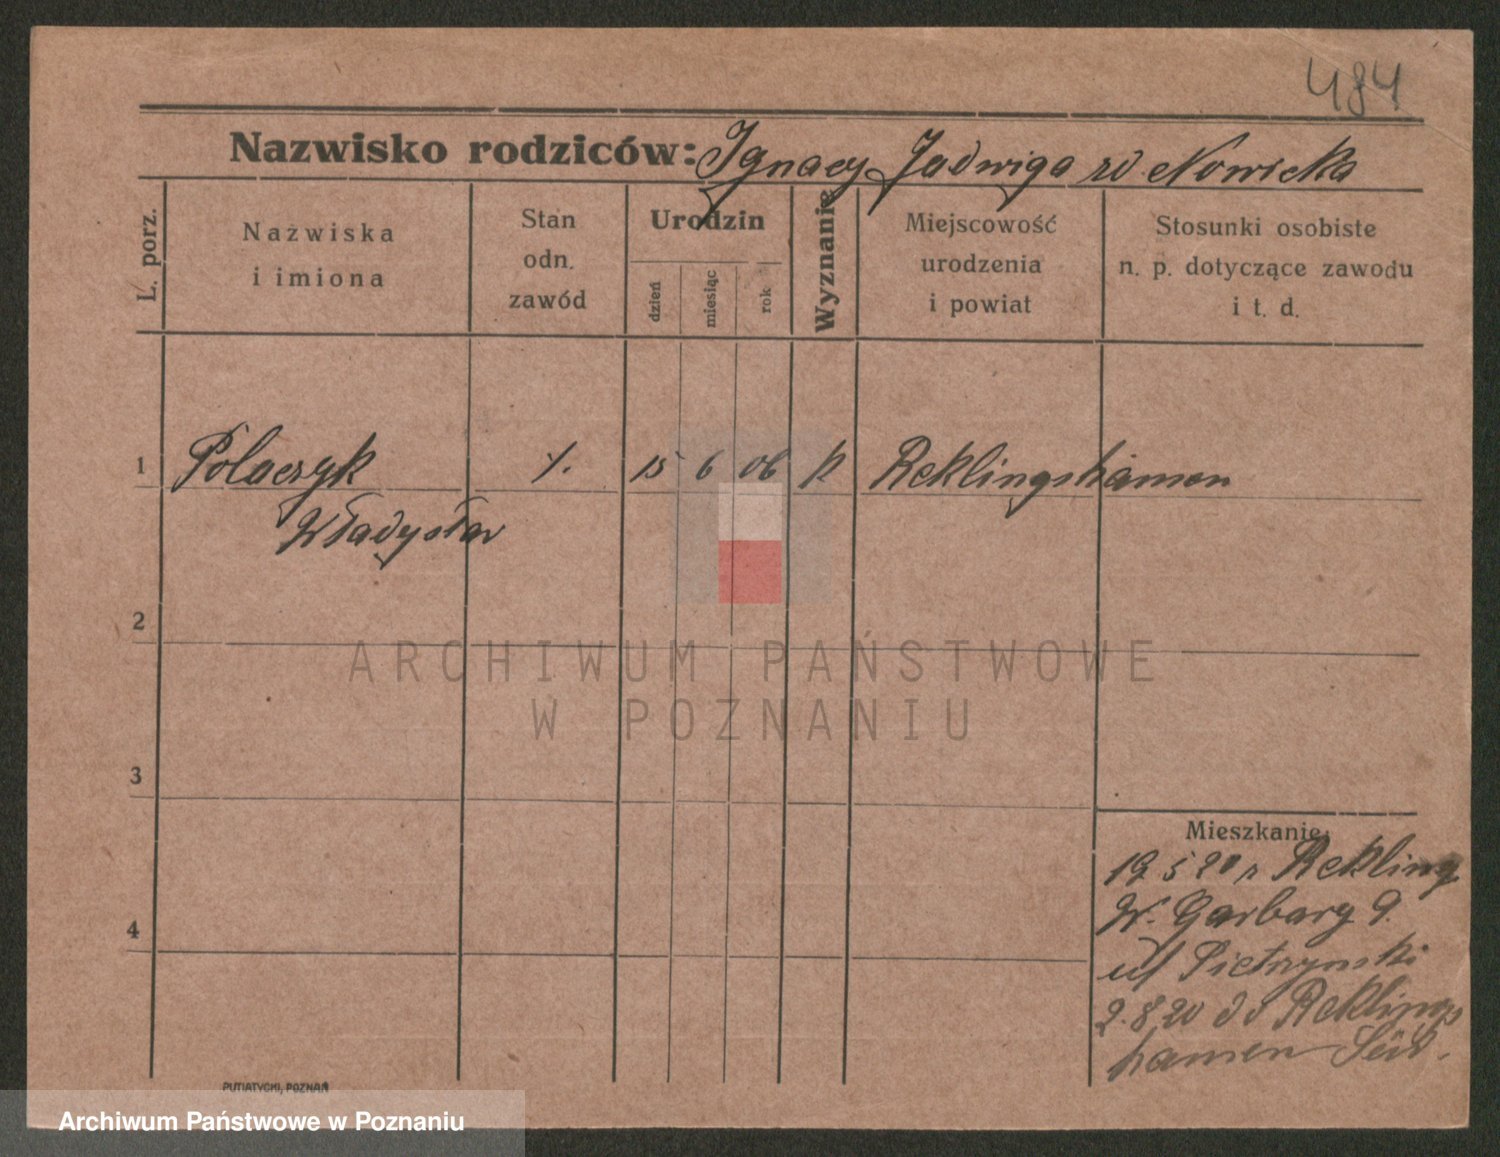 484
Nazwisko rodziców: Ignacy Jadwiga zd Nowicka
L. porz.
Nazwiska
i imiona
Stan
odn.
zawód
Urodzin
dzień
miesiąc
rok
Wyznanie
Miejscowość
urodzenia
i powiat
Stosunki osobiste
n. p. dotyczące zawodu
i t. d.
1 Polaczyk 15 6 06 k Reklingshamen
Władysław
2
3
4
ARCHIWUM PAŃSTWOWE
W POZNANIU
Mieszkanie:
19 5 20 z Rekling
W. Garbary 9.
u/ Pietrzynski
2.8.20 do Reklings
hamen Süd.
PUTIATYCKI, POZNAŃ
Archiwum Państwowe w Poznaniu